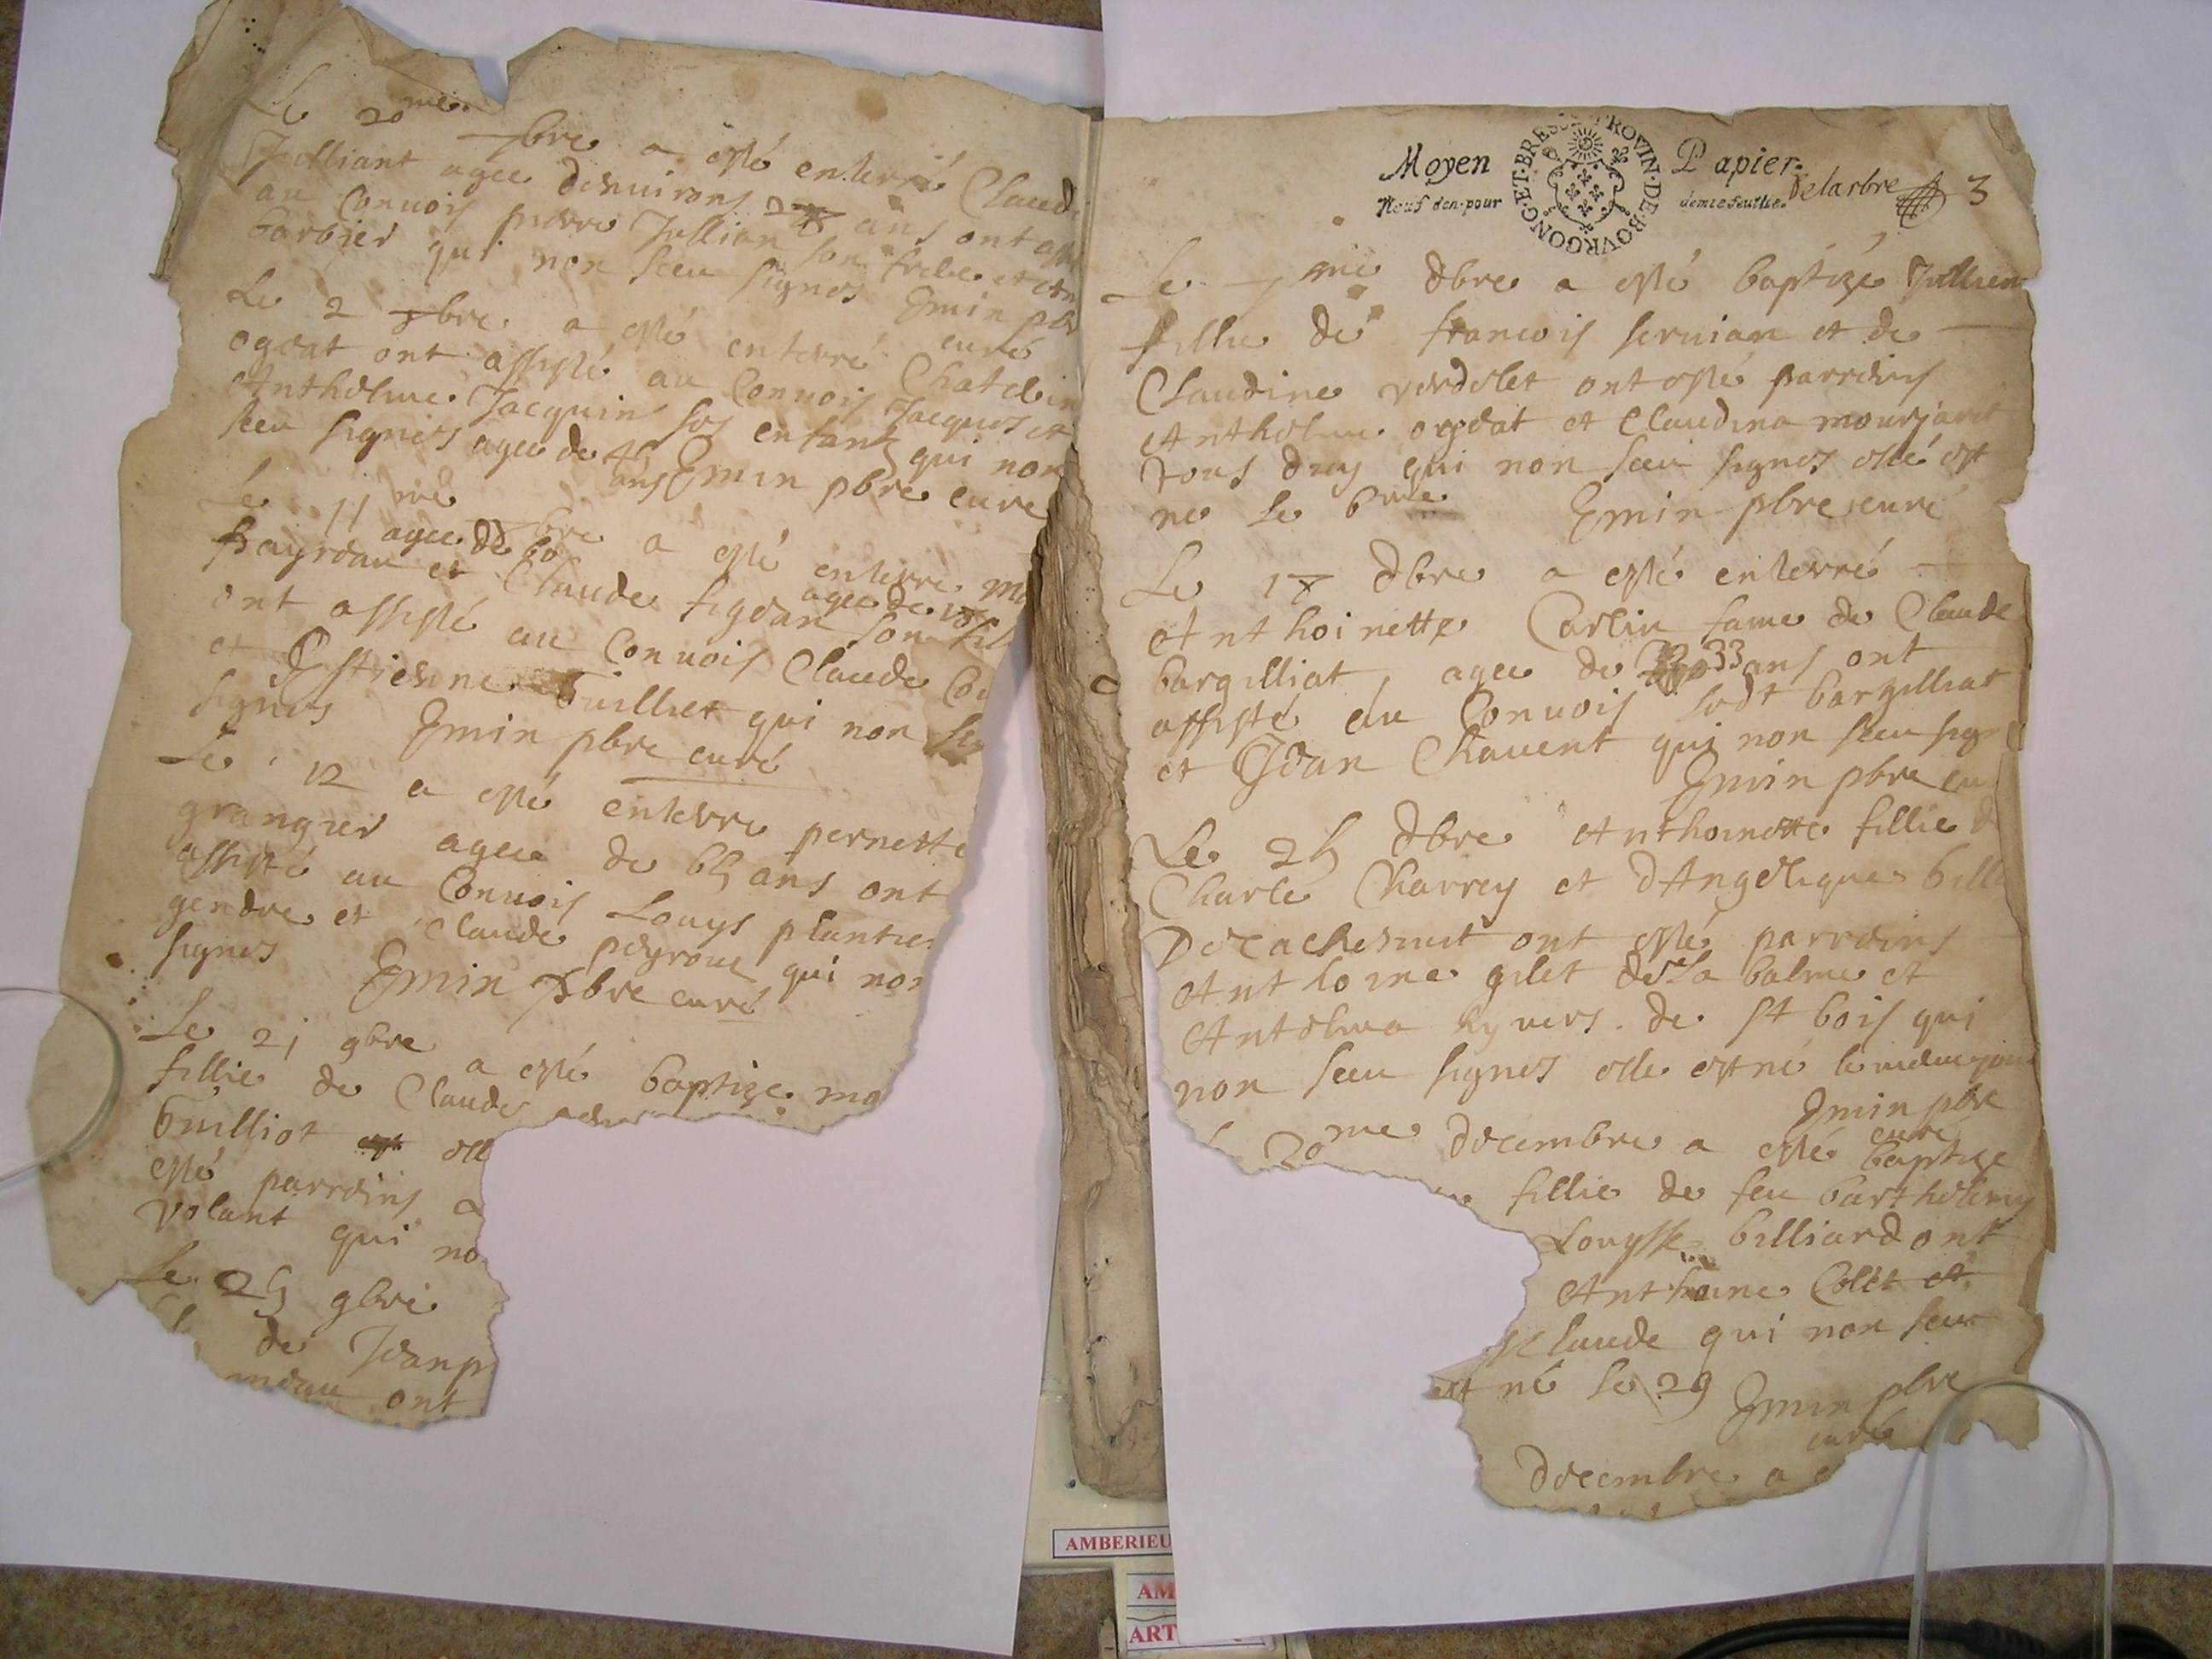 Le 20me 7bre a esté enterré Claud
Julliant agee denuirons ans ont assi
au Conuois pierre Jullian son frere et
barbier qui non sceu signer Emin pb
curé
Le 2 7bre a esté enterré Chatel
ogeat ont assisté au Conuois Jacques et
Antholme Jacquin ses enfantz qui non
sceu signer agee de 45 ans Emin pbre cure
Le 11me 7bre a esté enterre m
agee de 60 agee de
et Claude figean son fil
ont assisté au Conuois Claude
et Estienne Guilliet qui non sc
signer Emin pbre curé
Le 12 a esté enterre pernette
grangier agee de 65 ans ont
assisté au Conuois Louys plantie
gendre et Claude peyroue qui non
signer Emin pbre curé
Le 21 9bre a esté baptize ma
fillie de Claude
Guilliot ell
esté parreins a
volant qui no
Le 25 9bre
de Jeanp
ont
Moyen Papier.
Neuf den. pour demie feuille.
PROVIN·DE·BOVRGONG·ET·BRESSE
Delarbre 3
Le 7me 8bre a esté baptizé Jullien
fillie de francois seruian et de
Claudine verdelet ont esté parreins
Antholme ogeat et Claudina mourjaret
tous deuy qui non sceu signer elle est
ne le 6me Emin pbre curé
Le 17 8bre a esté enterré
Anthoinette Carlin fame de Claude
bargilliat, agee de 33 ans ont
assisté au Conuois ledt bargilliat
et Jean Chauent qui non sceu sign
Emin pbre cu
Le 25 8bre Anthoinette fillie d
Charle Charrey et dAngelique bill
ont esté parreins
Anthoine gilet de la balme et
Antelma hyuers de st bois qui
non sceu signer elle est né le meme jour
Emin pbre
curé
L 20me decembre a esté baptize
fillie de feu barthelemy
Louysse billiard ont
Anthoine Colet et
Claude qui non sceu
est né le 29 Emin pbre
curé
decembre a e
AMBERIEU
AM
ART